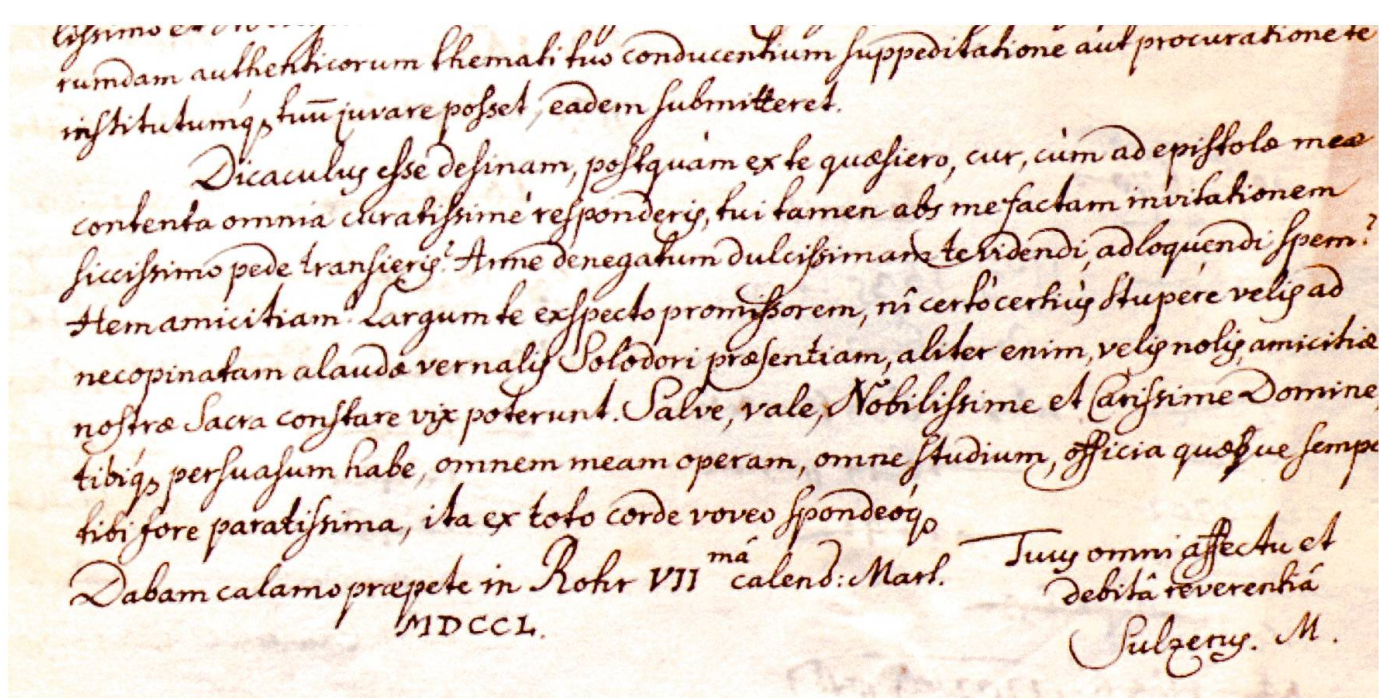 lissimo et
rumdam authenticorum themati tuo conducentium suppeditatione aut procuratione te
institutumq́ꝫ tuū juvare posset, eadem submitteret.
Dicaculus esse desinam, postquàm ex te quæsiero, cur, cùm ad epistolæ meæ
contenta omnia curatissimè responderis, tui tamen abs me factam invitationem
siccissimo pede transieris? Anne denegatum dulcissimam te videndi, adloquendi spem?
Hem amicitiam! Largum te exspecto promissorem, nî certò certiùs stupere velis ad
necopinatam alaudæ vernalis Solodori præsentiam, aliter enim, velis nolis, amicitiæ
nostræ Sacra constare vix poterunt. Salve, vale, Nobilissime et Carissime Domine,
tibiq́ꝫ persuasum habe, omnem meam operam, omne studium, officia quæque sempe
tibi fore paratissima, ita ex toto corde voveo spondeoq́ꝫ
Dabam calamo præpete in Rohr VII má calend: Mart.
MDCCL.
Tuus omni affectu et
debitâ reverentiâ
Sulzerus. M.